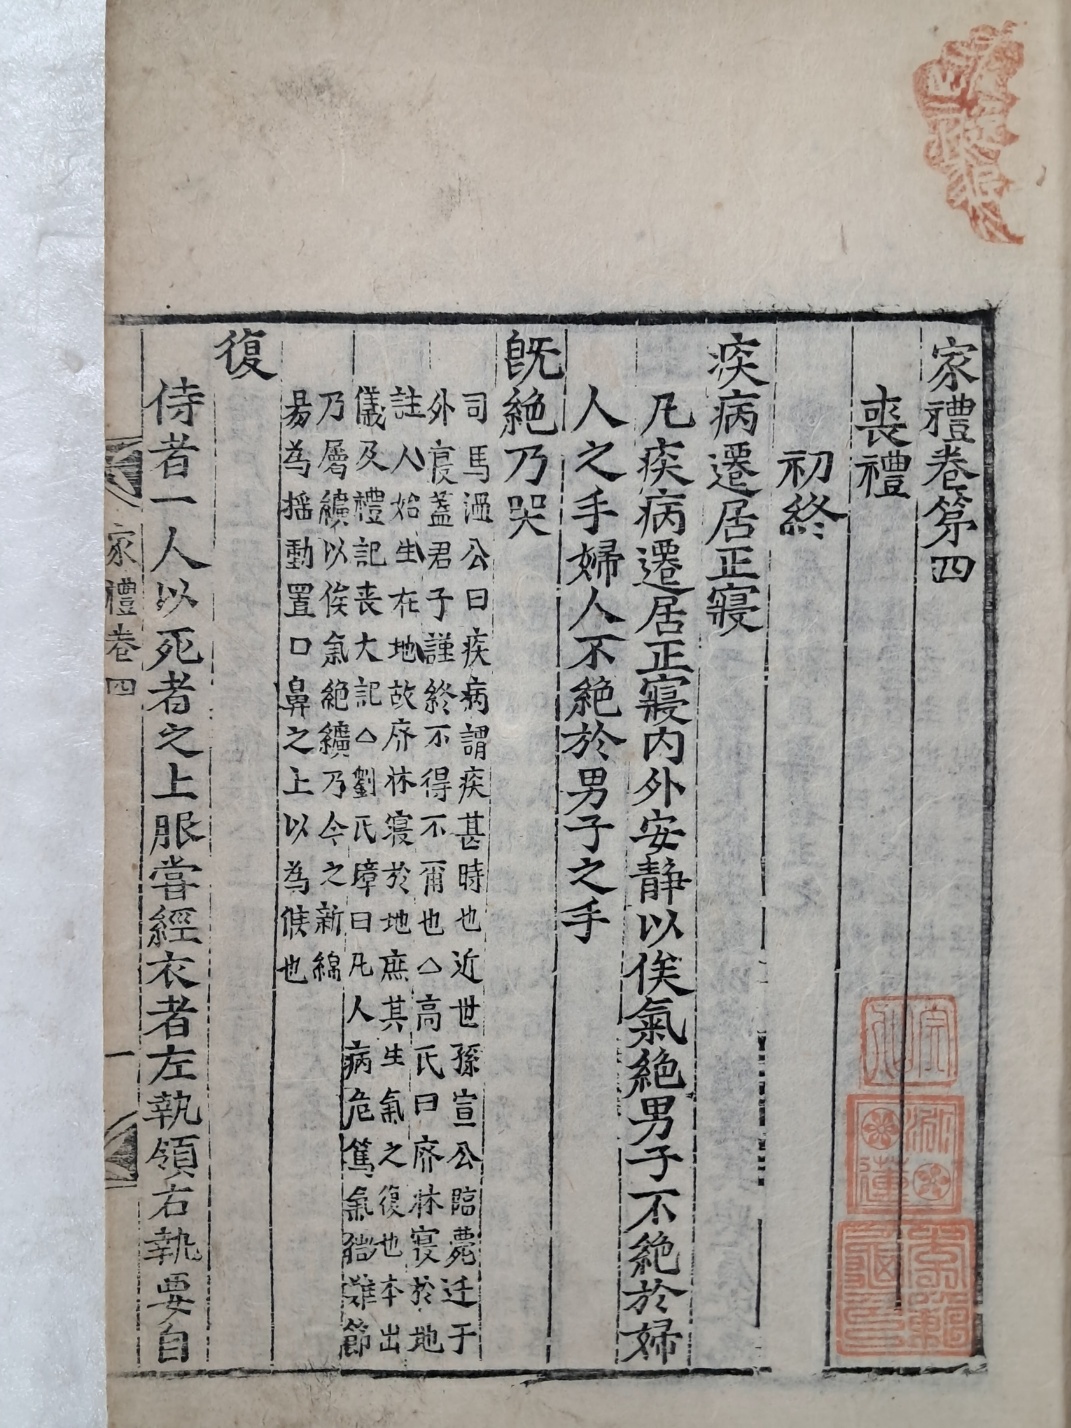 家禮卷第四
喪禮
初終
疾病遷居正寢
凡疾病遷居正寢內外安靜以俟氣絶男子不絶於婦
人之手婦人不絶於男子之手
旣絶乃哭
司馬溫公曰疾病謂疾甚時也近世孫宣公臨薨迁于
外寢蓋君子謹終不得不爾也△高氏曰廢牀寢於地
註人始生在地故廢牀寢於地庶其生氣之復也本出
儀及禮記喪大記△劉氏璋曰凡人病危篤氣微難節
乃屬纊以俟氣絶纊乃今之新綿
易為揺動置口鼻之上以為候也
復
侍者一人以死者之上服嘗經衣者左執領右執要自
家禮卷四
一